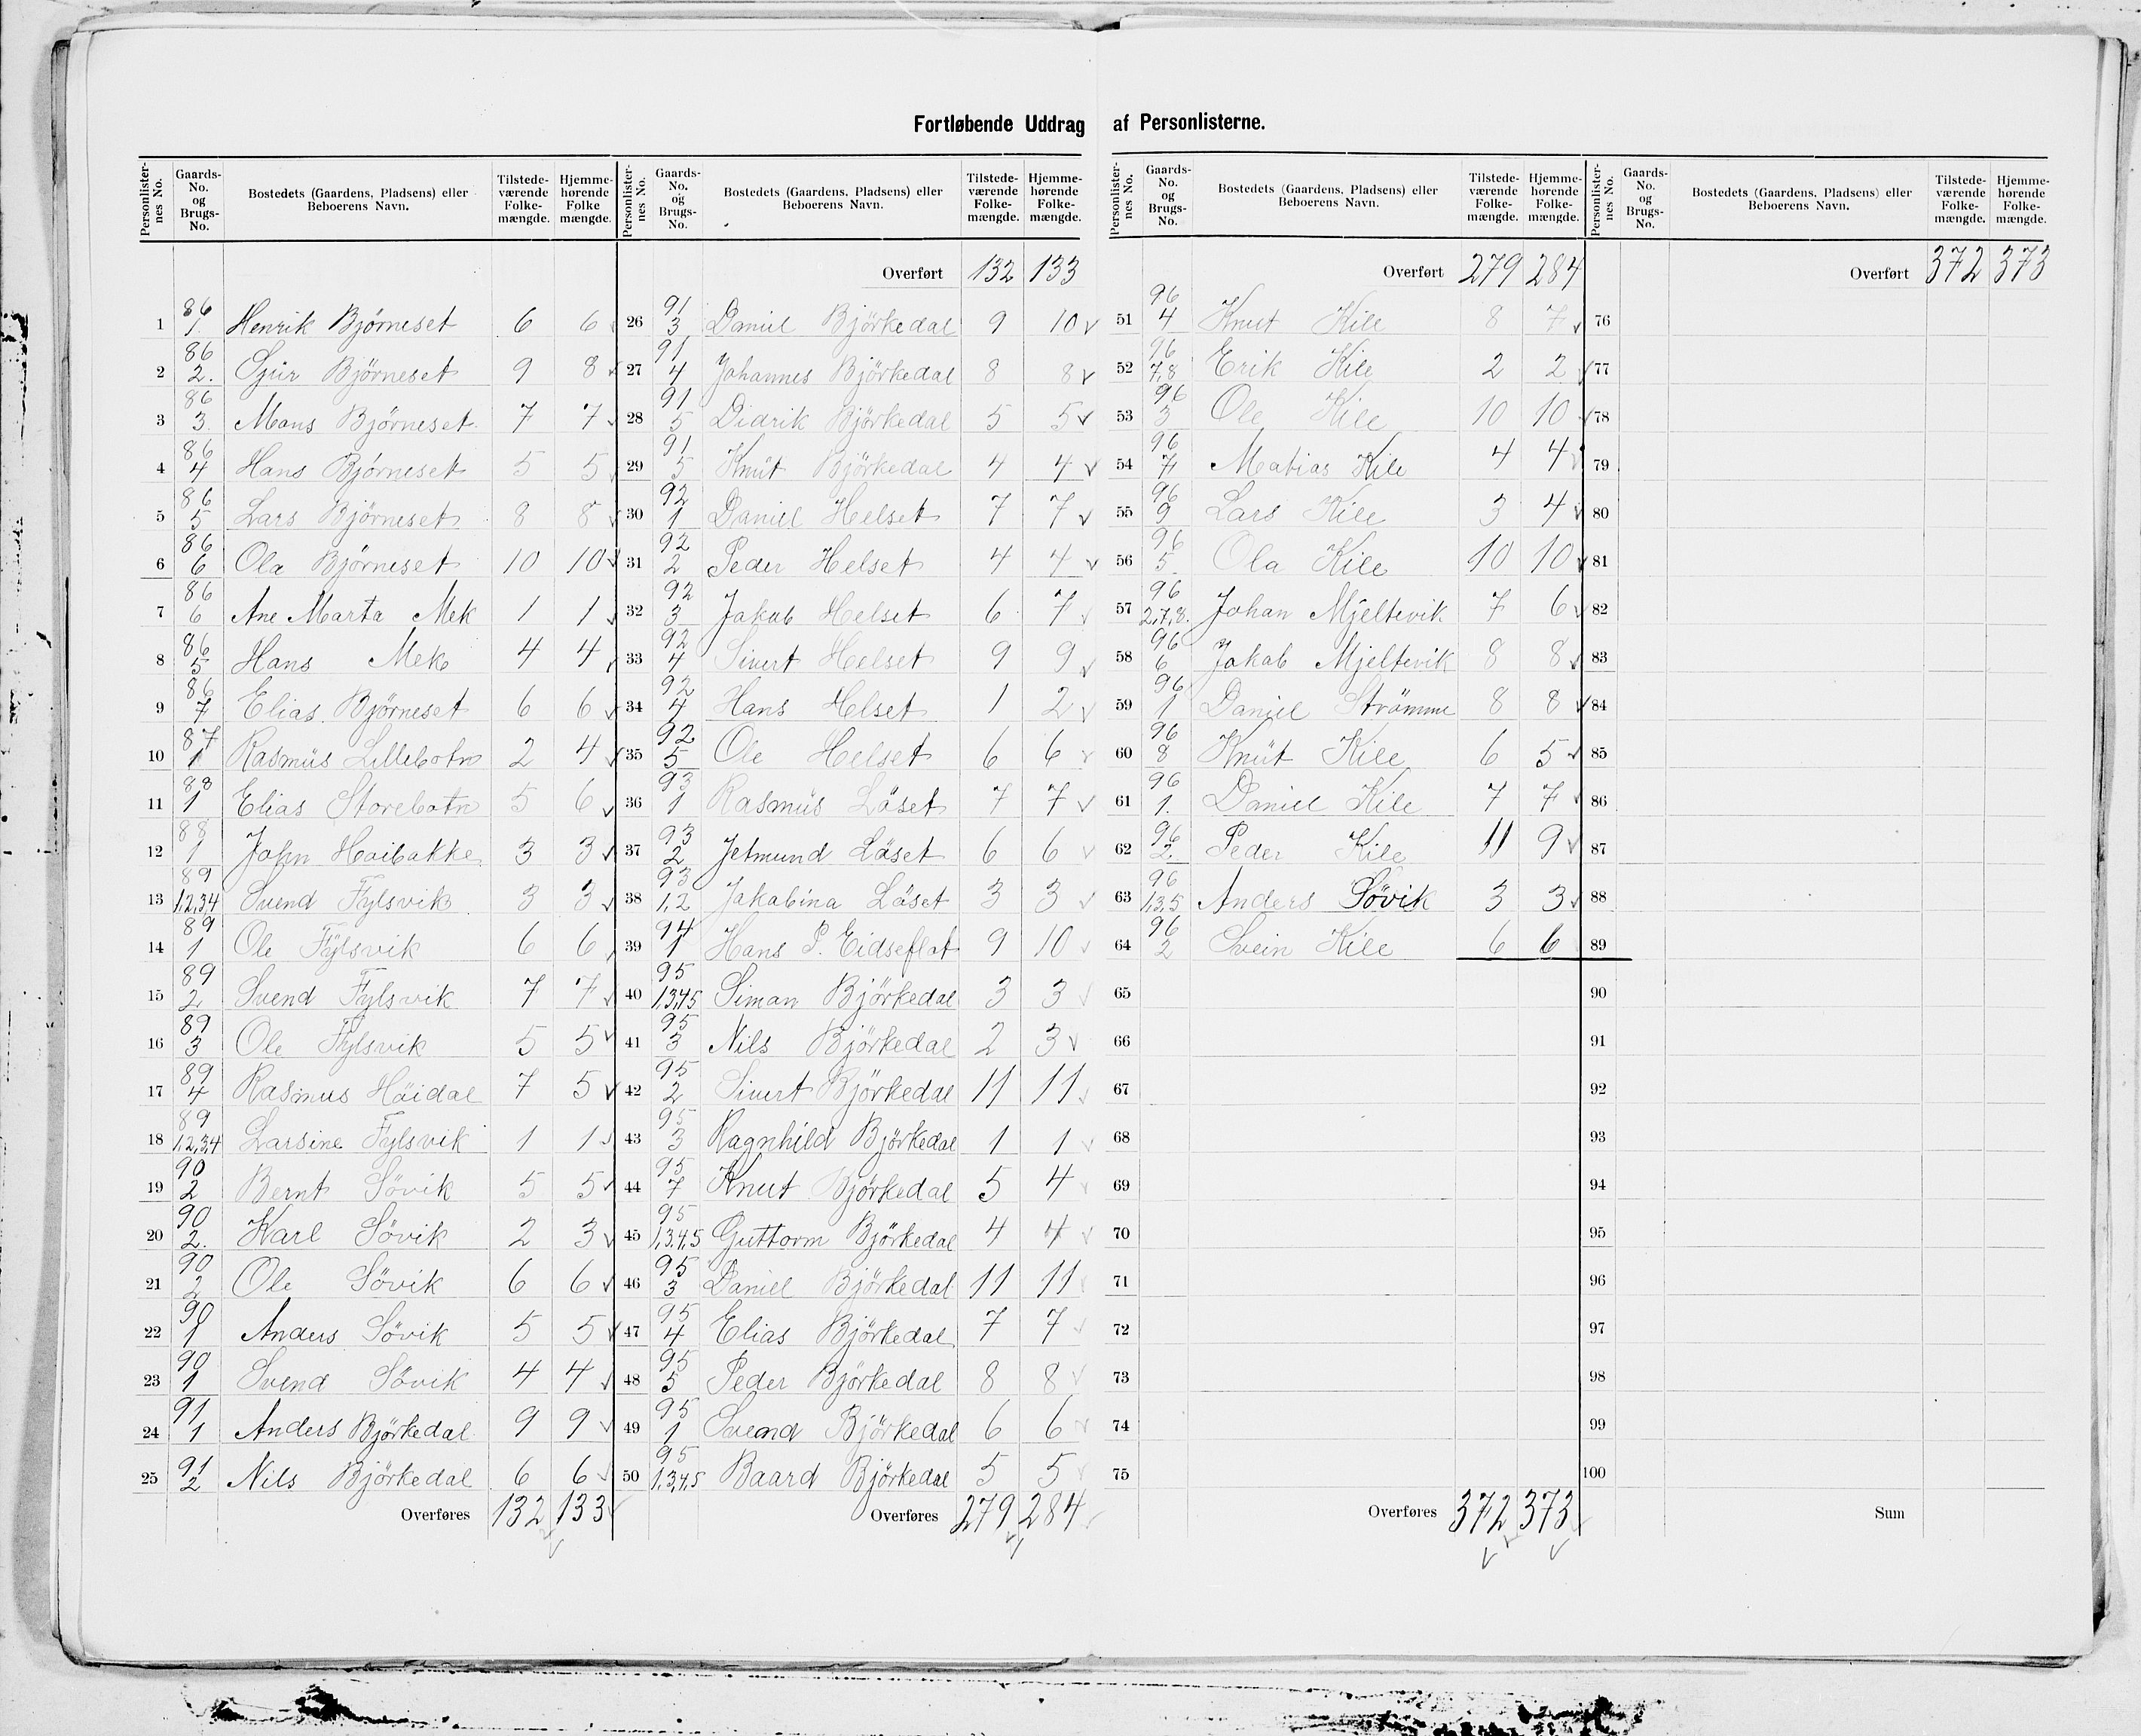 Fortløbende Uddrag af Personlisterne.
Personlisternes No. Gaards-No. og Brugs-No. Bostedets (Gaardens, Pladsens) eller Beboerens Navn. Tilstedeværende Folkemængde. Hjemmehørende Folkemængde.
1 86/1. Henrik Bjørneset 6 6
2 86/2. Sjur Bjørneset 9 8
3 86/3. Mons Bjørneset 7 7
4 86/4 Hans Bjørneset 5 5
5 86/5 Lars Bjørneset 8 8
6 86/6 Ola Bjørneset 10 10
7 86/6 Ane Marta Mek 1 1
8 86/5 Hans Mek 4 4
9 86/7 Elias Bjørneset 6 6
10 87/1 Rasmus Lillebotn 2 4
11 88/1 Elias Storebotn 5 6
12 88/1 John Hoibakke 3 3
13 89/1,2,3,4 Svend Fylsvik 3 3
14 89/1 Ole Fylsvik 6 6
15 89/2 Svend Fylsvik 7 7
16 89/3 Ole Fylsvik 5 5
17 89/4 Rasmus Höidal 7 5
18 89/1,2,3,4 Larsine Fylsvik 1 1
19 90/2 Bernt Sövik 5 5
20 90/2. Karl Sövik 2 3
21 90/2 Ole Sövik 6 6
22 90/1 Anders Sövik 5 5
23 90/1 Svend Sövik 4 4
24 91/1 Anders Björkedal 9 9
25 91/2 Nils Björkedal 6 6
Overføres 132 133
Personlisternes No. Gaards-No. og Brugs-No. Bostedets (Gaardens, Pladsens) eller Beboerens Navn. Tilstedeværende Folkemængde. Hjemmehørende Folkemængde.
Overført 132 133
26 91/3 Daniel Björkedal 9 10
27 91/4 Johannes Björkedal 8 8
28 91/5 Didrik Björkedal 5 5
29 91/5 Knut Björkedal 4 4
30 92/1 Daniel Helset 7 7
31 92/2 Peder Helset 4 4
32 92/3 Jakob Helset 6 7
33 92/4 Sivert Helset 9 9
34 92/4 Hans Helset 1 2
35 92/5 Ole Helset 6 6
36 93/1 Rasmus Löset 7 7
37 93/2 Jetmund Löset 6 6
38 93/1,2 Jakobina Löset 3 3
39 94/1 Hans P. Eidseflot 9 10
40 95/1,3,4,5 Simon Björkedal 3 3
41 95/3 Nils Björkedal 2 3
42 95/2 Sivert Björkedal 11 11
43 95/3 Ragnhild Björkedal 1 1
44 95/7 Knut Björkedal 5 4
45 95/1,3,4,5 Guttorm Björkedal 4 4
46 95/3 Daniel Björkedal 11 11
47 95/4 Elias Björkedal 7 7
48 95/5 Peder Björkedal 8 8
49 95/1 Svend Björkedal 6 6
50 95/1,3,4,5 Baard Björkedal 5 5
Overføres 279 284
Personlisternes No. Gaards-No. og Brugs-No. Bostedets (Gaardens, Pladsens) eller Beboerens Navn. Tilstedeværende Folkemængde. Hjemmehørende Folkemængde.
Overført 279 284
51 96/4 Knut Kile 8 7
52 96/7,8 Erik Kile 2 2
53 96/3 Ole Kile 10 10
54 96/7 Matias Kile 4 4
55 96/9 Lars Kile 3 4
56 96/5 Ola Kile 10 10
57 96/2,7,8. Johan Mjeltevik 7 6
58 96/6 Jakob Mjeltevik 8 8
59 96/1 Daniel Strömme 8 8
60 96/8 Knut Kile 6 5
61 96/1. Daniel Kile 7 7
62 96/2. Peder Kile 11 9
63 96/1,3,5 Anders Sövik 3 3
64 96/2 Svein Kile 6 6
65
66
67
68
69
70
71
72
73
74
75
Overføres 372 373
Personlisternes No. Gaards-No. og Brugs-No. Bostedets (Gaardens, Pladsens) eller Beboerens Navn. Tilstedeværende Folkemængde. Hjemmehørende Folkemængde.
Overført 372 373
76
77
78
79
80
81
82
83
84
85
86
87
88
89
90
91
92
93
94
95
96
97
98
99
100
Sum